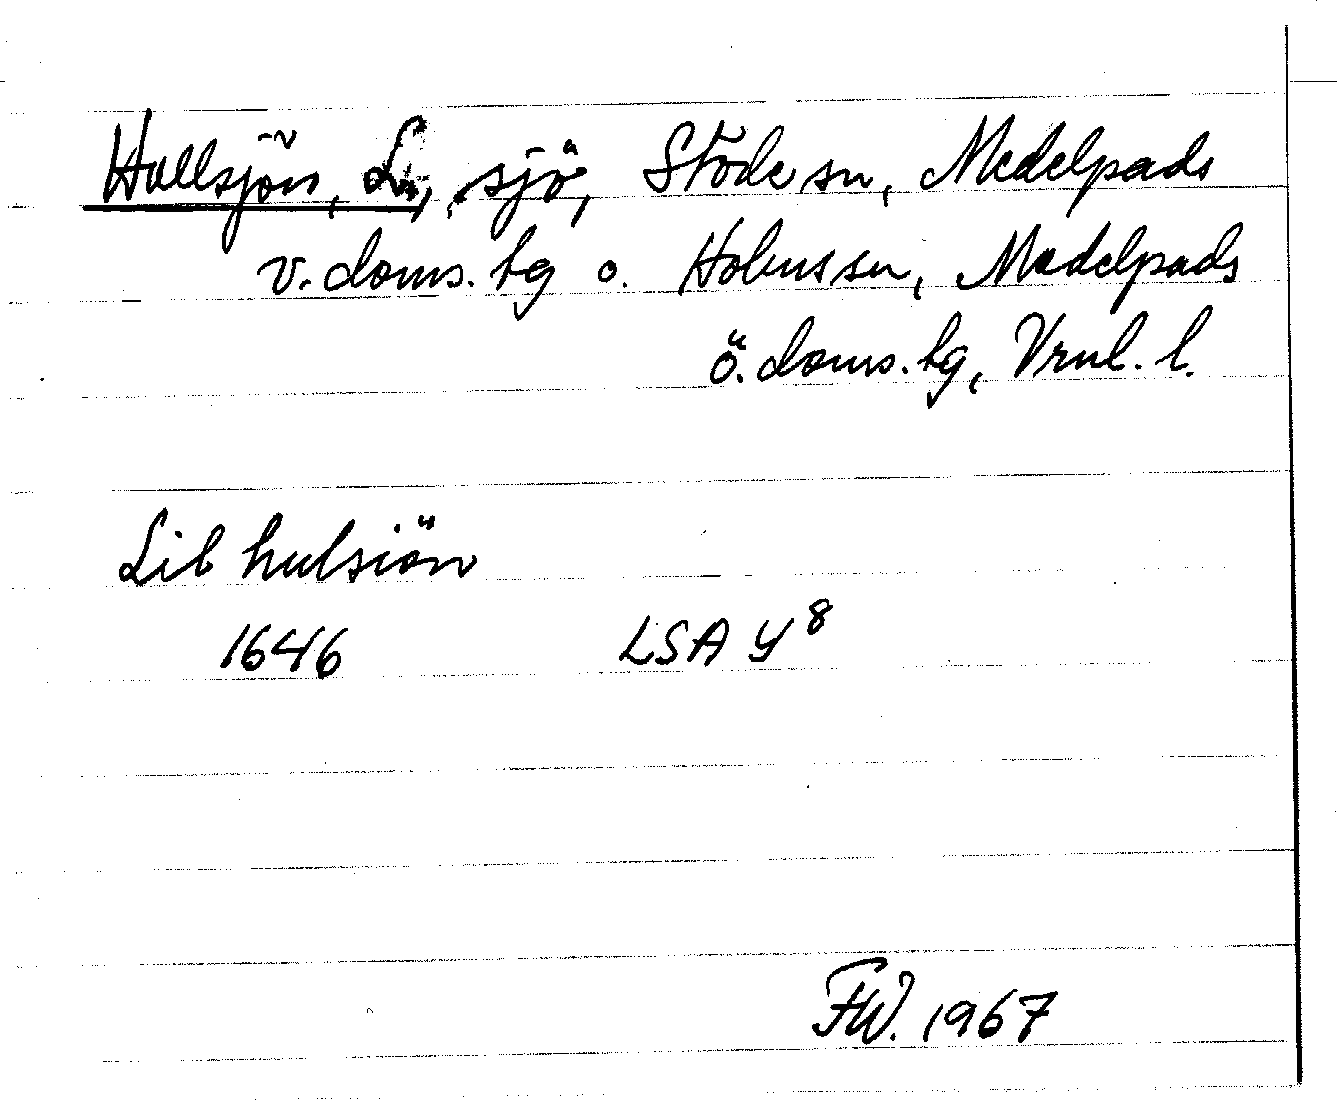 Hullsjön, L., sjö, Stöde sn, Medelpads
v. doms. tg o. Holms sn, Medelpads
ö. doms. tg, Vrnl. l.
Lil hulsiön
1646 LSA Y 8
FW. 1967